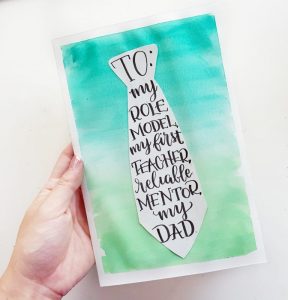 TO:
my
ROLE
MODEL,
my first
TEACHER,
reliable
MENTOR,
my
DAD